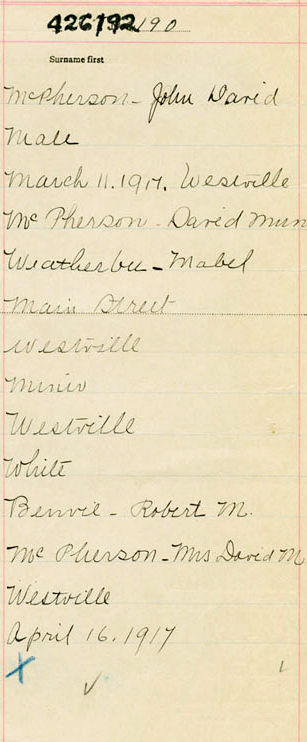 426192
190
Surname first
McPherson - John David
Male
March 11. 1917. Westville
McPherson - David Mun
Weatherbee - Mabel
Main Street
Westville
Miner
Westville
White
Benvie - Robert M.
McPherson - Mrs David M
Westville
April 16. 1917
X
✓